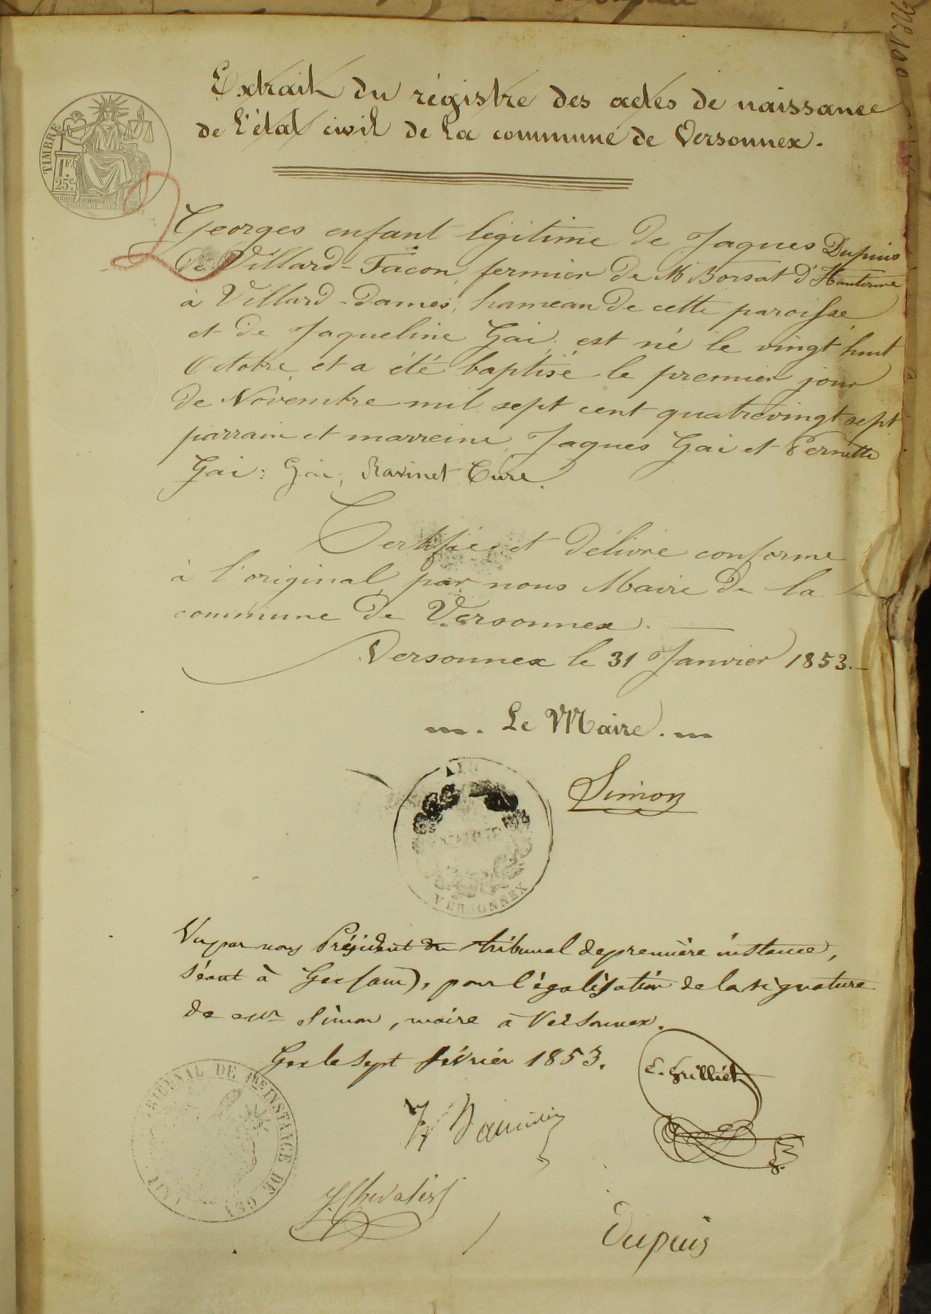 Extrait du régistre des actes de naissance
de l'état civil de la commune de Versonnex.
TIMBRE
1F
25c
2
Georges enfant légitime de Jaques Dupuis
de Villard-Tacon fermier de Mr Borsat d'Hauterive
à Villard-dames, hameau de cette paroisse
et de Jaqueline Gai, est né le vingt huit
Octobre et a été baptisé le premier jour
de Novembre mil sept cent quatrevingt sept
parrain et marreine Jaques Gai et Pernette
Gai: Gai, Ravinet Curé.
Certifié et délivré conforme
à l'original par nous Maire de la
commune de Versonnex.
Versonnex le 31 Janvier 1853.
Le Maire.
Simon
AIN
VERSONNEX
Vu par nous Président du tribunal de première instance,
séant à Gex (ain), pour légalisation de la signature
de Mr Simon, maire à Versonnex.
Gex le sept février 1853.
TRIBUNAL DE 1ère INSTANCE DE GEX
(AIN)
E. Grilliet
J. Chevalier
Dupuis